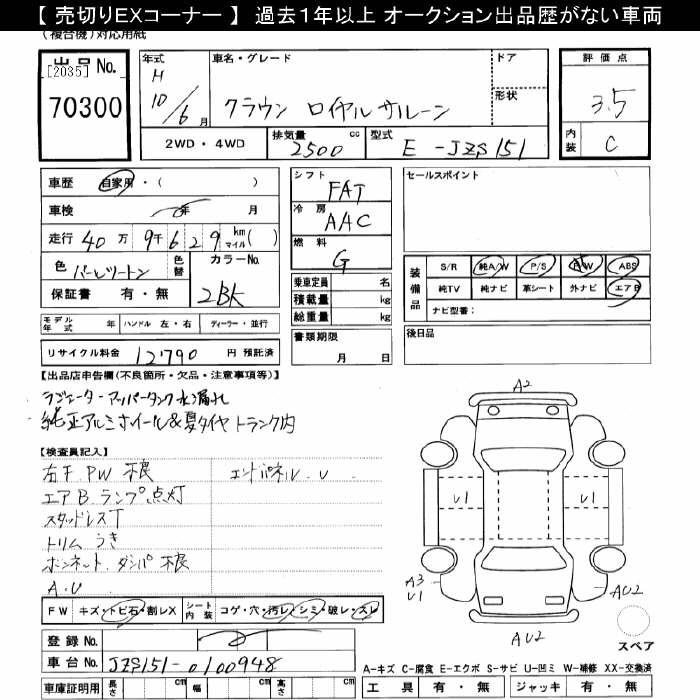 【 売切りEXコーナー 】 過去1年以上 オークション出品歴がない車両
(複合機)対応用紙
出品No.
[2035]
70300
年式
H
10/6月
車名・グレード
クラウン ロイヤルサルーン
ドア
形状
評価点
3.5
内装
C
2WD・4WD
排気量
2500
cc
型式
E-JZS151
車歴 自家用・( )
車検 年 月
走行 40万9千629 km マイル( )
色 パールツートン
色替
カラーNo.
2BK
保証書 有・無
シフト
FAT
冷房
AAC
燃料
G
乗車定員 名
積載量 kg
総重量 kg
書類期限
月 日
セールスポイント
装備品
S/R 純A/W P/S P/W ABS
純TV 純ナビ 革シート 外ナビ エアB
ナビ型番:
後日品
モデル年式 年 ハンドル 左・右 ディーラー・並行
リサイクル料金 12790 円 預託済
【出品店申告欄(不良箇所・欠品・注意事項等)】
ラジエーターアッパータンク水漏れ
純正アルミホイール&夏タイヤ トランク内
【検査員記入】
右F.PW 不良
エンドパネル.U
エアBランプ点灯
スタッドレスT
トリムうき
ボンネット.ダンパ不良
A.U
FW キズ・トビ石・割レX
シート内装 コゲ・穴・汚レ・シミ・破レ・スレ
登録No.
車台No. JZS151-0100948
車庫証明用 長さ cm 幅 cm 高さ cm
A2
U1
U1
A3
U1
AU2
AU2
スペア
A-キズ C-腐食 E-エクボ S-サビ U-凹ミ W-補修 XX-交換済
工具 有・無 ジャッキ 有・無